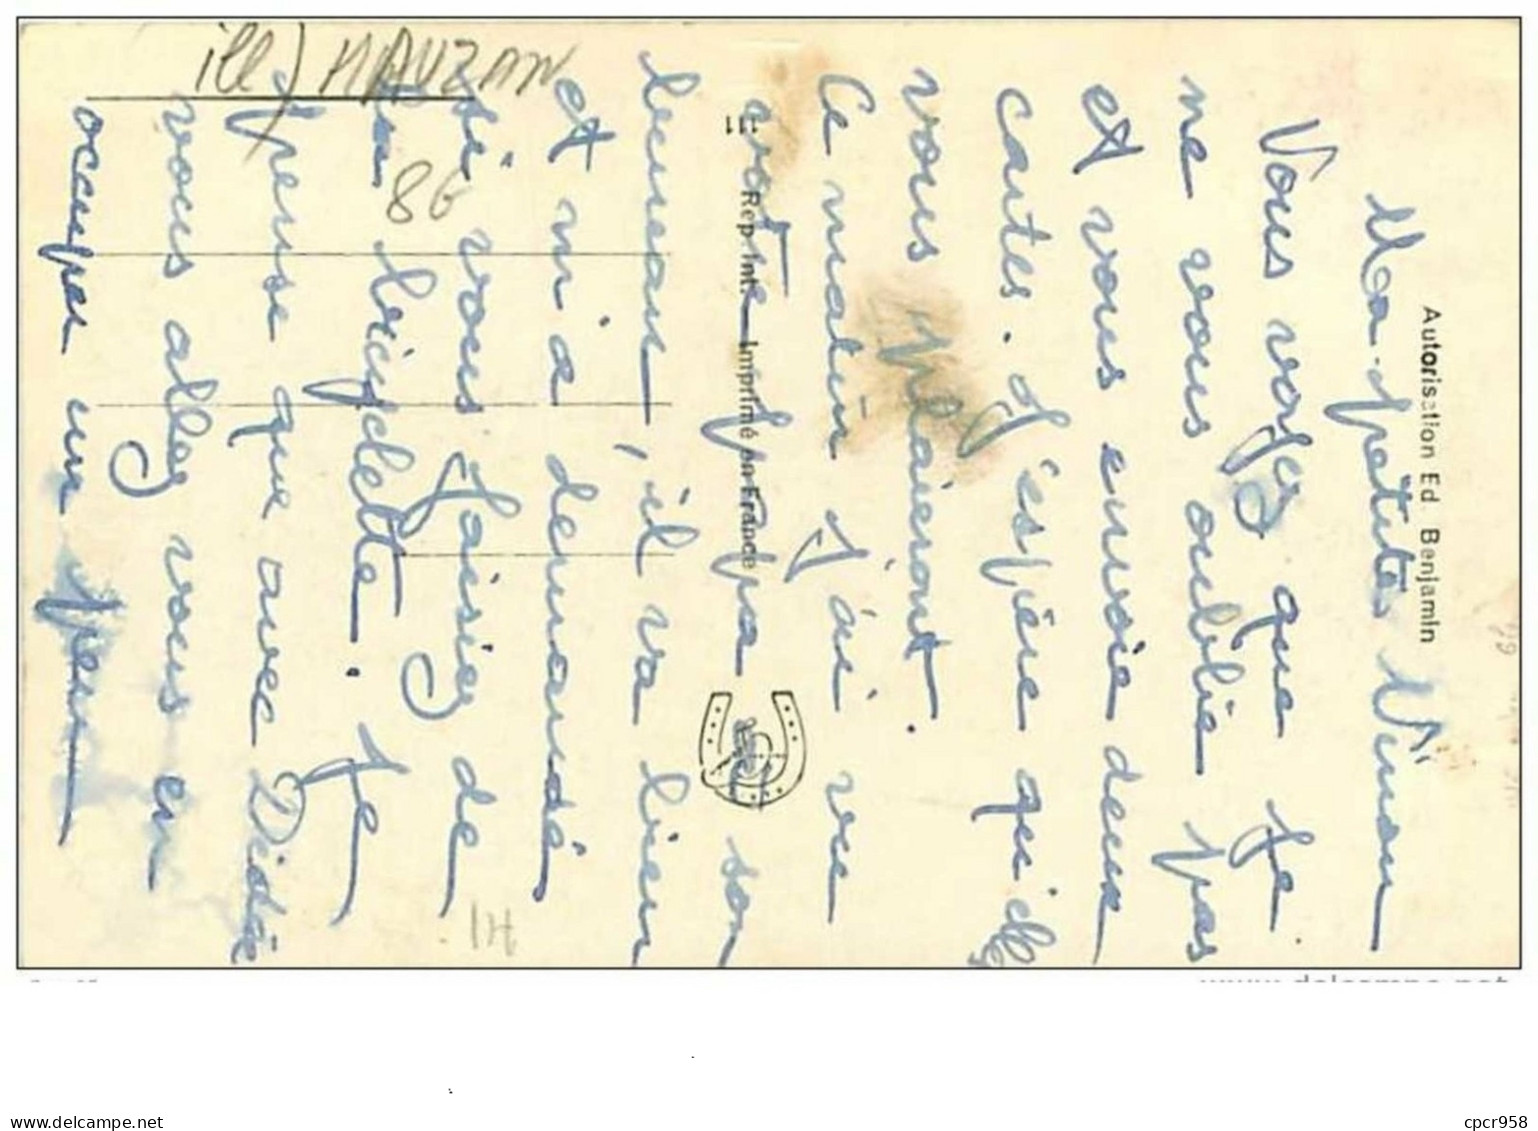 ill) MAUZAN
86
Autorisation Ed. Benjamin
111 Rep. Int. Imprimé en France
Ma petite Ninon
Vous voyez que je
ne vous oublie pas
et vous envoie deux
cartes. J'espère qu'elles
vous plairont.
Ce matin J'ai vu
votre papa son
lumeau, il va bien
et m'a demandé
si vous faisiez de
la bicyclette. Je
pense que avec Didie
vous allez vous en
occuper un peu
www.delcampe.net
delcampe.net
cpcr958